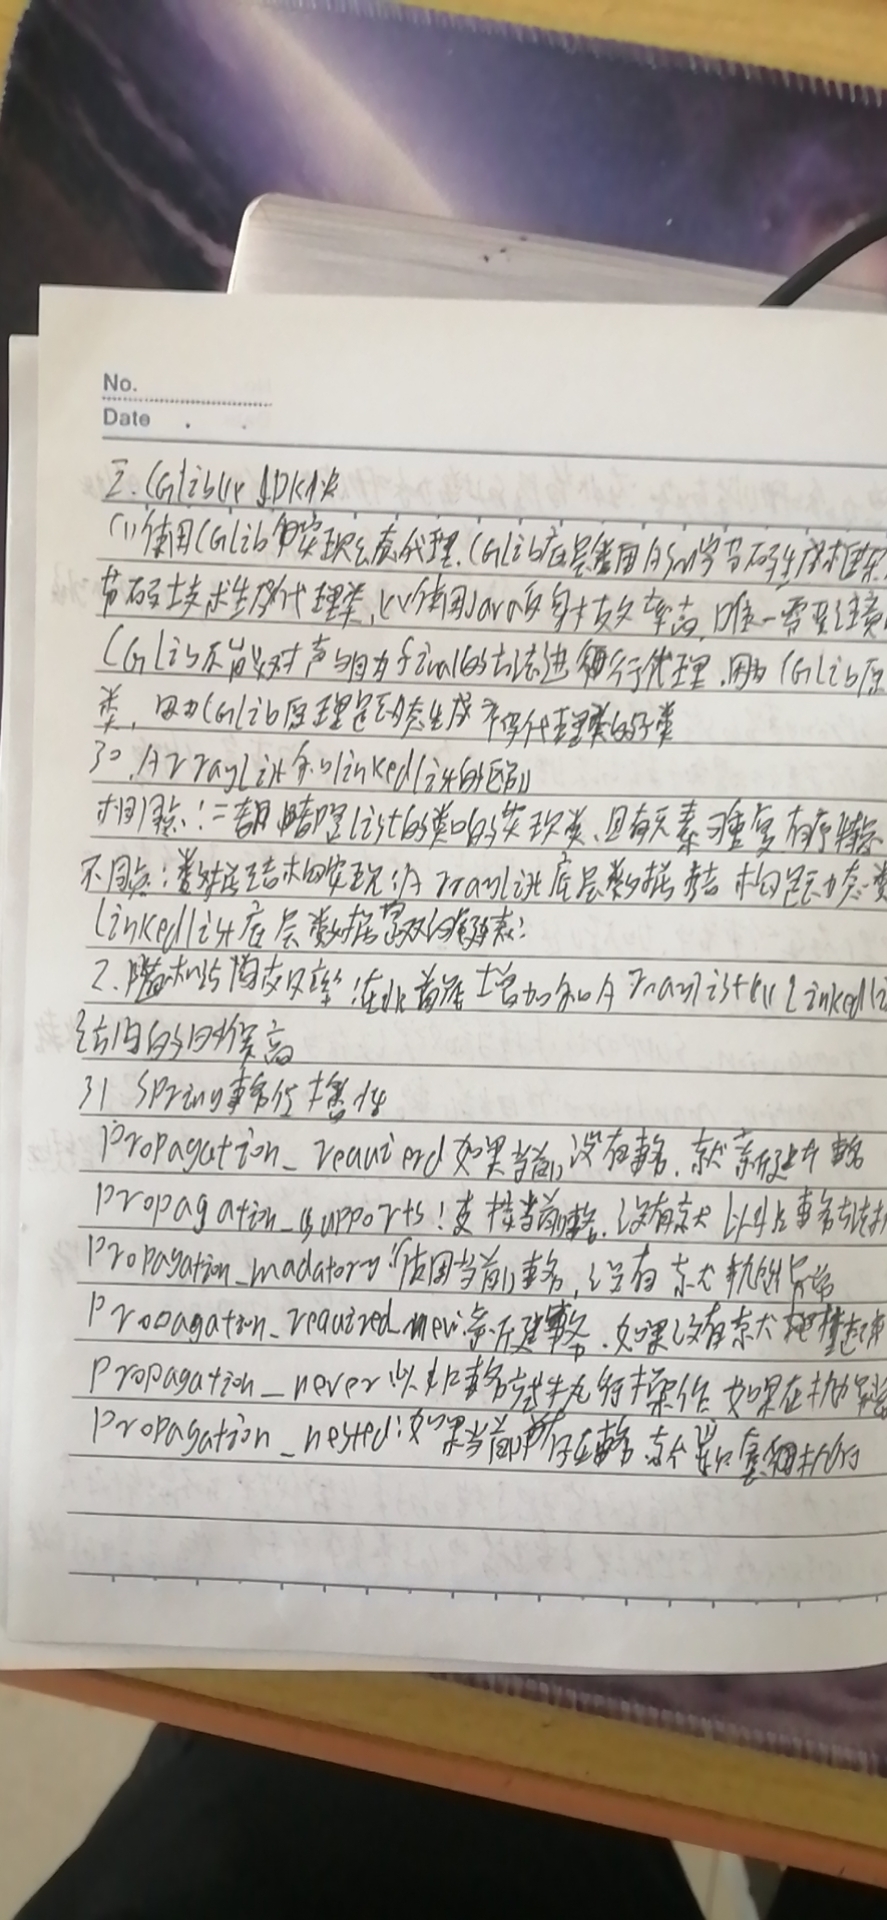 No.
Date
三.CGlib比JDK快
(1)使用CGLib实现动态代理.CGLib底层采用ASM字节码生成框架
节码技术生成代理类,比使用Java反射技术效率高,唯一需要注意
CGLib不能对声明为final的方法进行代理.因为CGLib原
类,因为CGLib原理是动态生成 代理类的子类
30.Arraylist和linkedlist的区别
相同点:二者都是list的接口的实现类、且有元素可重复有序特点
不同点:数据结构的实现:Arraylist底层数据结构是动态数
linkedlist底层数据是双向链表:
2.随机访问 效率:在非首尾增加和Arraylist比linked
时候高
31 Spring事务传播
Propagation_requierd如果当前没有事务.就新建 事务
Propagation_supports:支持当前事务.没有就以非事务方法
Propagation_madatory:使用当前事务,没有就抛出异常
Propagation_required_new:新建事务.如果没有就把
Propagation_never:以非事务方式执行操作 如果在
Propagation_nested:如果当前 存在事务.就 执行